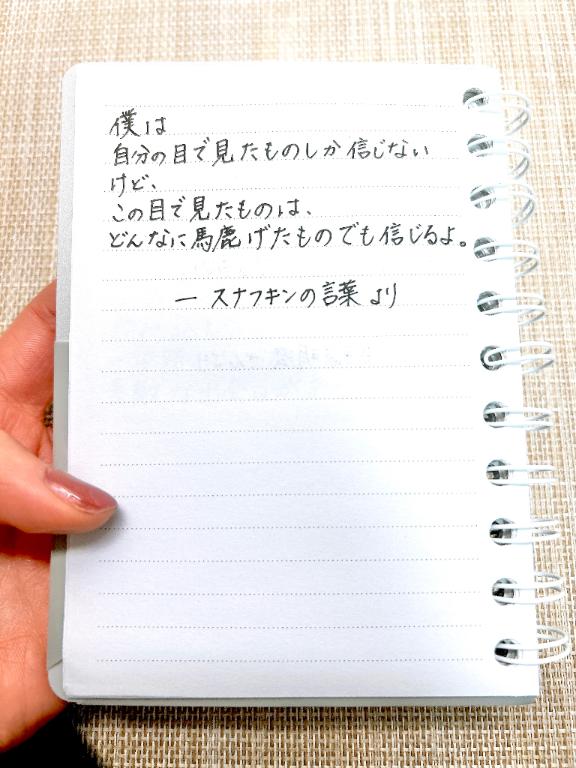 僕は
自分の目で見たものしか信じない
けど、
この目で見たものは、
どんなに馬鹿げたものでも信じるよ。
― スナフキンの言葉 より